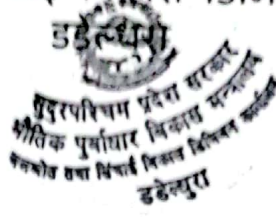 डडेल्धुरा
सुदूरपश्चिम प्रदेश सरकार
भौतिक पूर्वाधार विकास मन्त्रालय
जलस्रोत तथा सिंचाई विकास डिभिजन कार्यालय
डडेल्धुरा